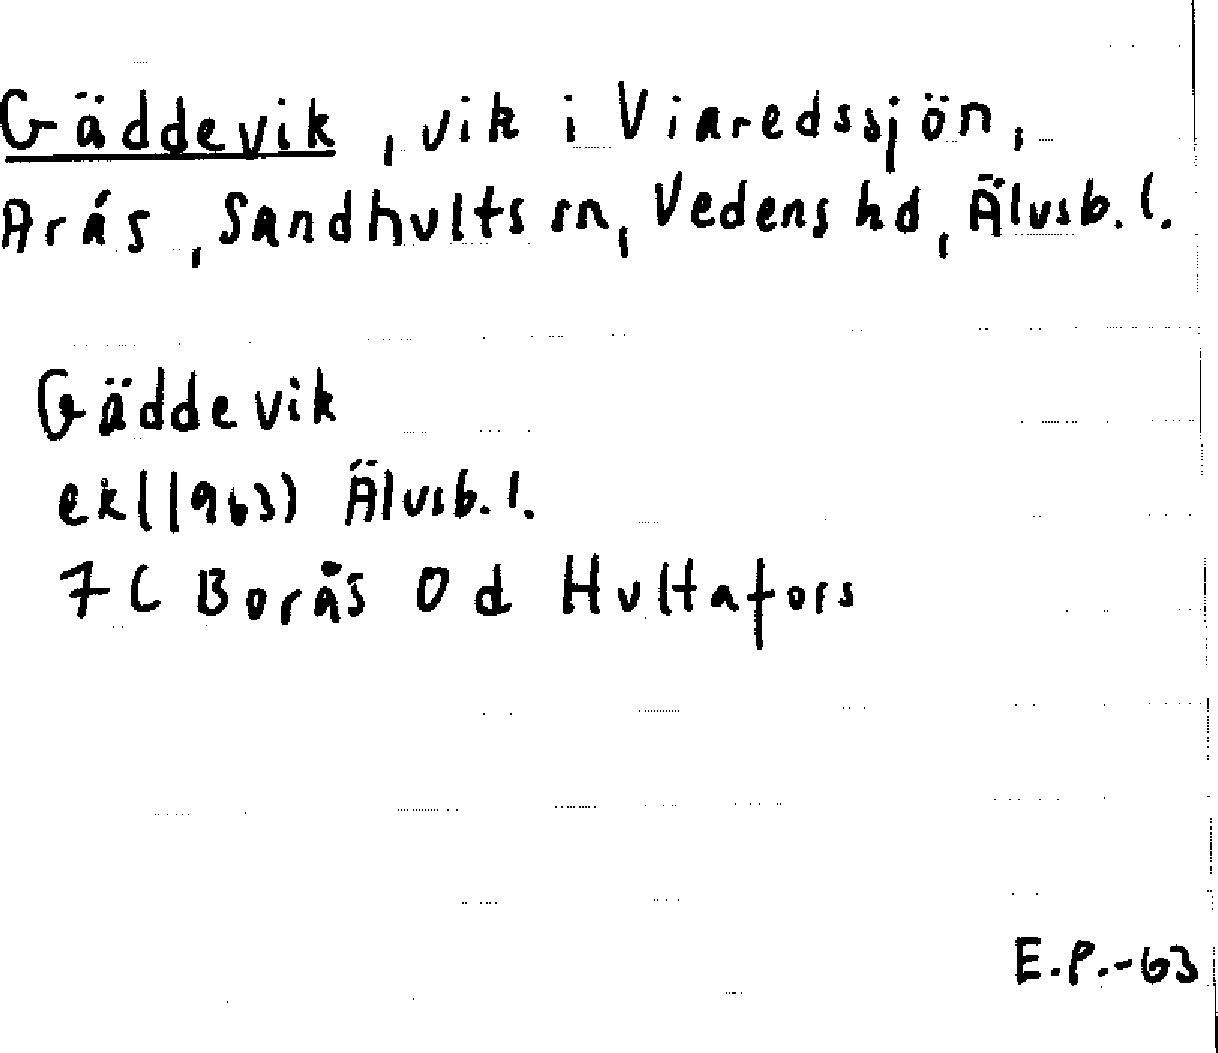 Gäddevik, vik i Viaredssjön,
Arås, Sandhults sn, Vedens hd, Älvsb. l.
Gäddevik
ek(1963) Älvsb. l.
7C Borås 0d Hultafors
E.P.-63